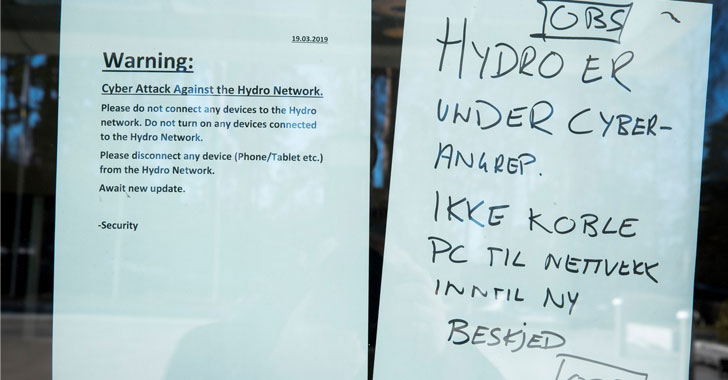 19.03.2019
Warning:
Cyber Attack Against the Hydro Network.
Please do not connect any devices to the Hydro
network. Do not turn on any devices connected
to the Hydro Network.
Please disconnect any device (Phone/Tablet etc.)
from the Hydro Network.
Await new update.
-Security
OBS
HYDRO ER
UNDER CYBER-
ANGREP.
IKKE KOBLE
PC TIL NETTVERK
INNTIL NY
BESKJED